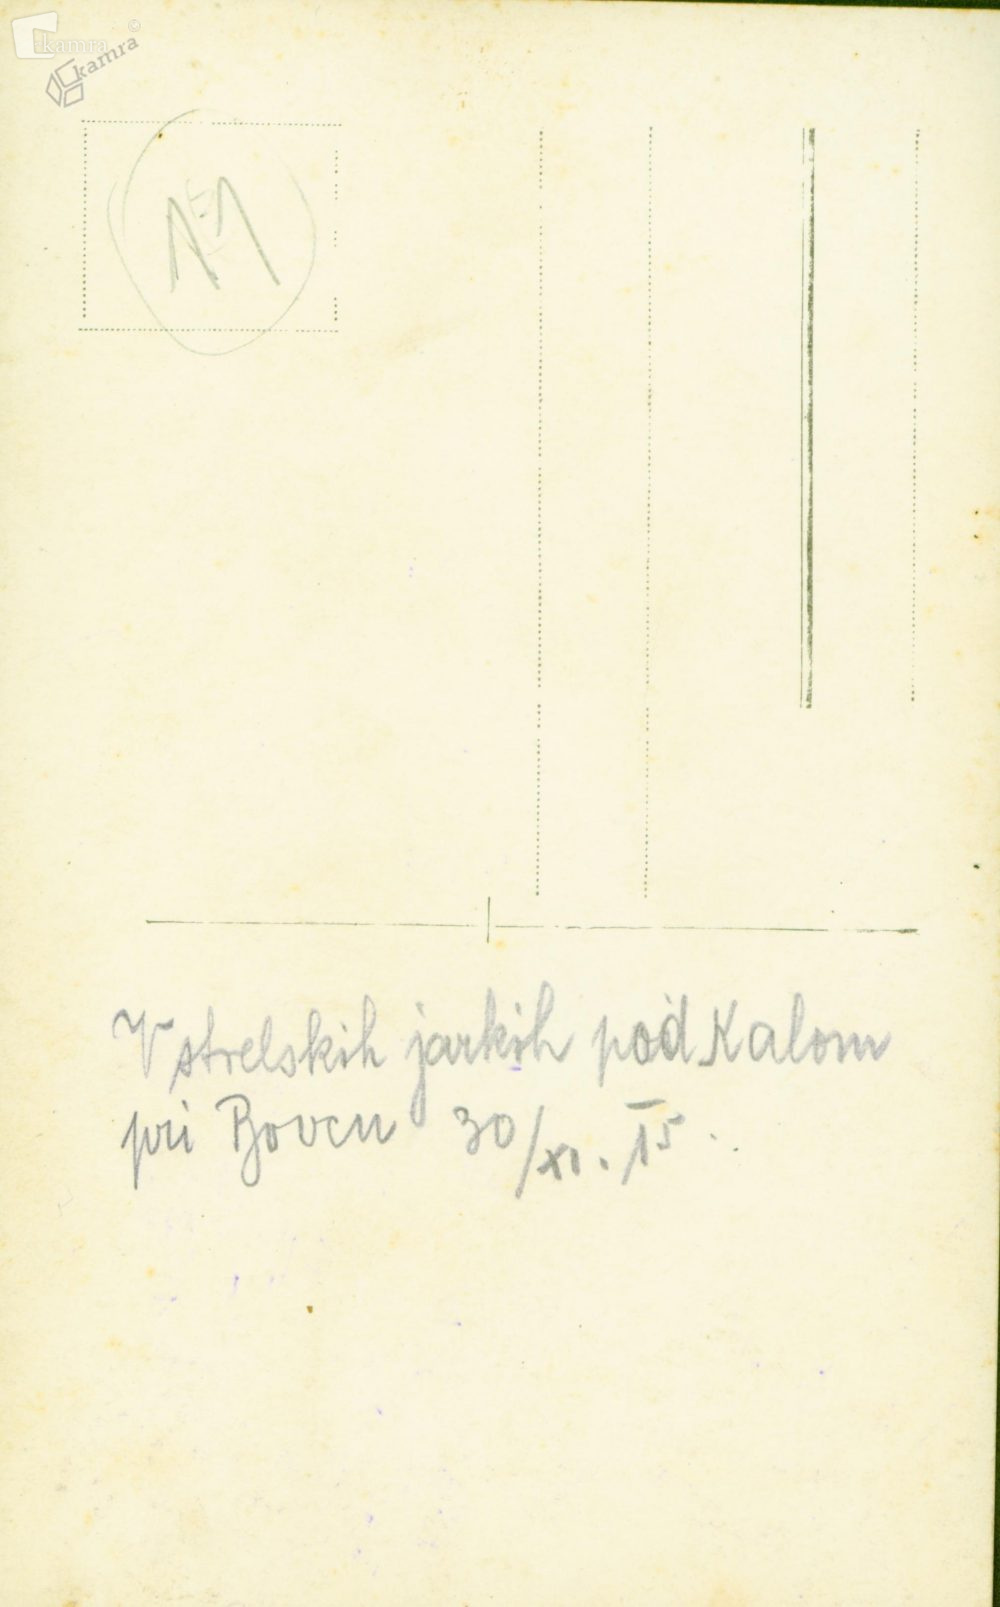 kamra
kamra
11
V strelskih jarkih pod Kalom
pri Bovcu 30/XI. 15.